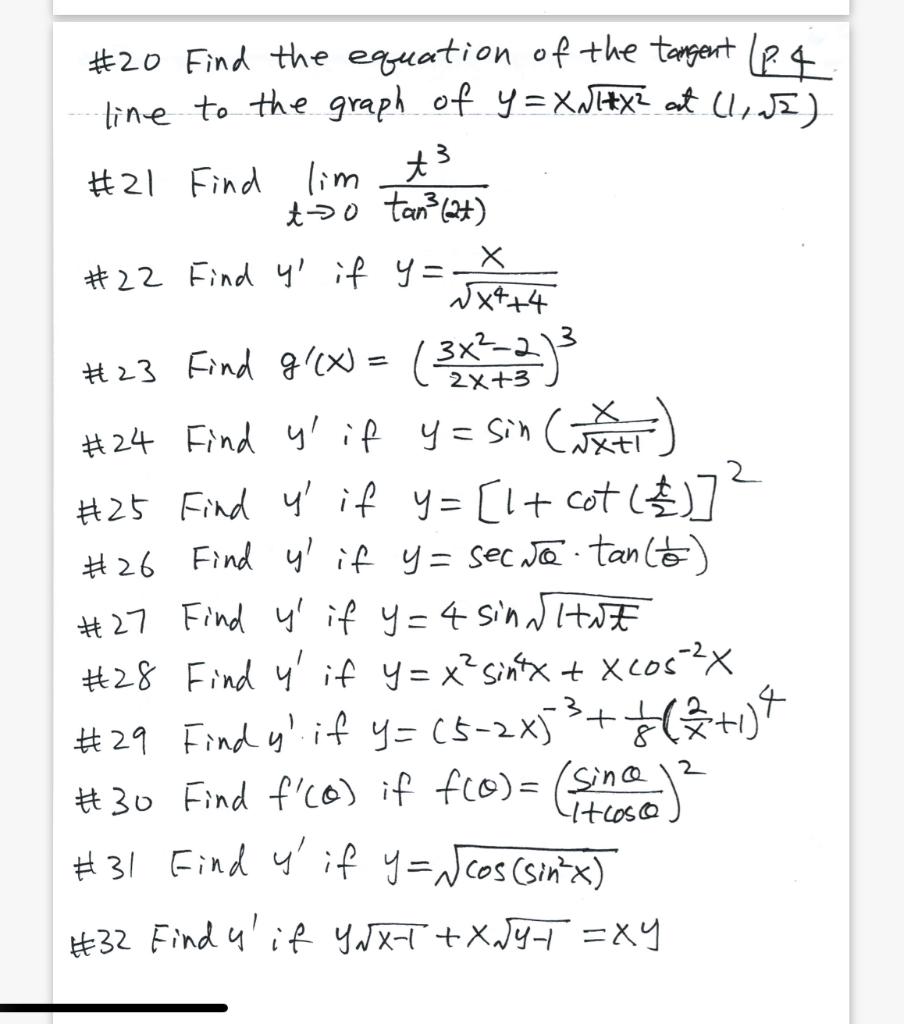 #20 Find the equation of the tangent P. 4
line to the graph of y = x√1+x² at (1, √2)
#21 Find lim t→0 t³ / tan³(2t)
#22 Find y' if y = x / √x⁴+4
#23 Find g'(x) = (3x²-2 / 2x+3)³
#24 Find y' if y = sin (x / √x+1)
#25 Find y' if y = [1 + cot (t/2)]²
#26 Find y' if y = sec √θ · tan(1/θ)
#27 Find y' if y = 4 sin √1+√t
#28 Find y' if y = x² sin⁴x + x cos⁻²x
#29 Find y' if y = (5-2x)⁻³ + 1/8 (2/x +1)⁴
#30 Find f'(θ) if f(θ) = (sin θ / 1+cos θ)²
#31 Find y' if y = √cos (sin²x)
#32 Find y' if y√x-1 + x√y-1 = xy